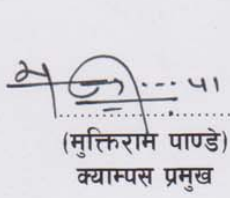 (मुक्तिराम पाण्डे)
क्याम्पस प्रमुख